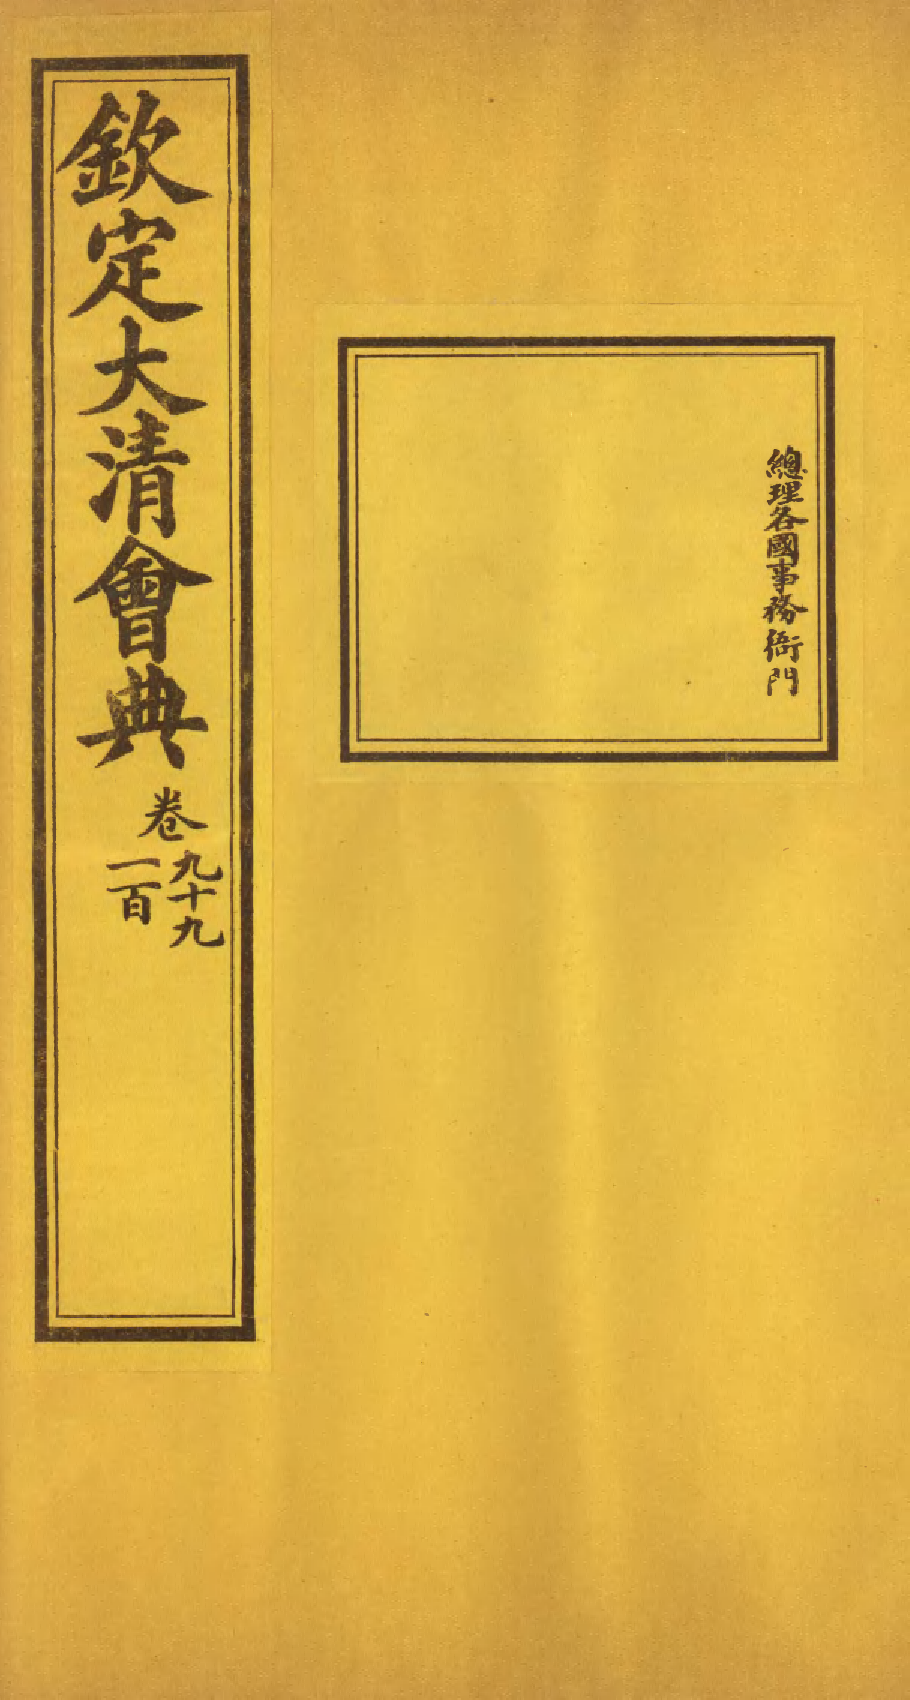 總理各國事務衙門
欽定大清會典卷九十九
一百